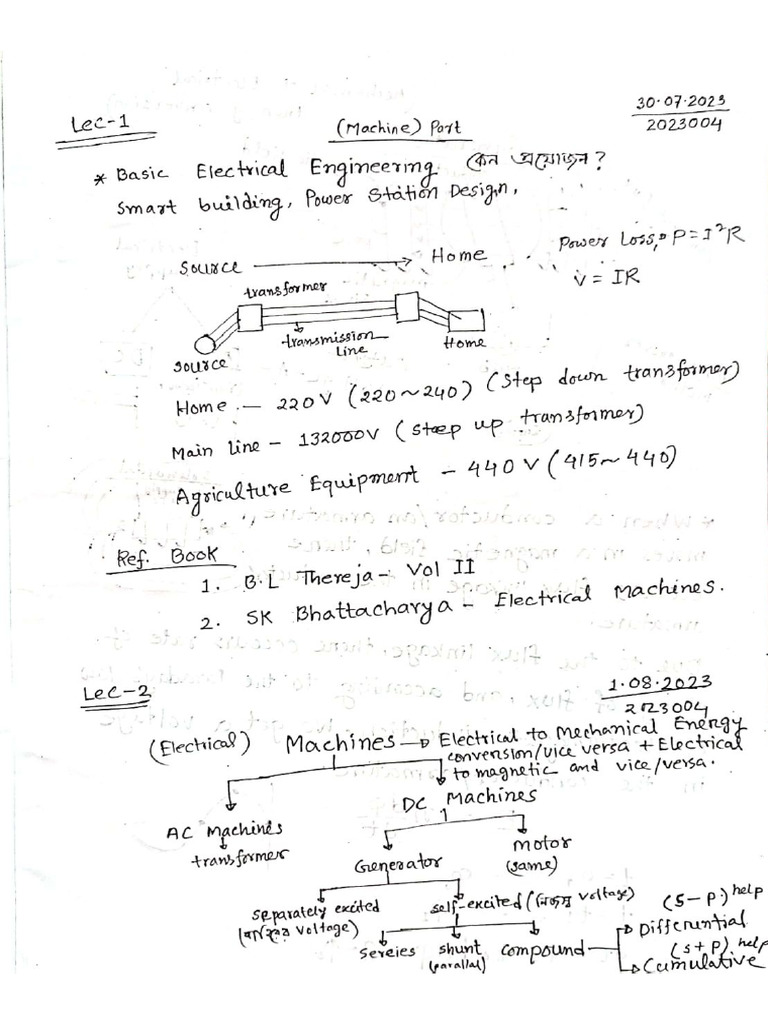 Lec-1
(Machine) Part
30.07.2023
2023004
* Basic Electrical Engineering কেন প্রয়োজন?
Smart building, Power Station Design,
Source → Home
Power Loss, P = I²R
V = IR
transformer
transmission
Line
Source
Home
Home - 220V (220~240) (Step down transformer)
Main line - 132000V (Steep up transformer)
Agriculture Equipment - 440 V (415~440)
Ref. Book
1. B.L Thereja - Vol II
2. SK Bhattacharya - Electrical Machines.
Lec-2
1.08.2023
2023004
(Electrical) Machines → Electrical to Mechanical Energy
conversion/vice versa + Electrical
to magnetic and vice/versa.
AC Machines
transformer
DC Machines
Generator
Motor
(same)
Separately excited
(বাইরের voltage)
self-excited (নিজস্ব voltage)
Sereies
shunt
(parallal)
compound
(S-P) help
Differential
(S+P) help
Cumulative